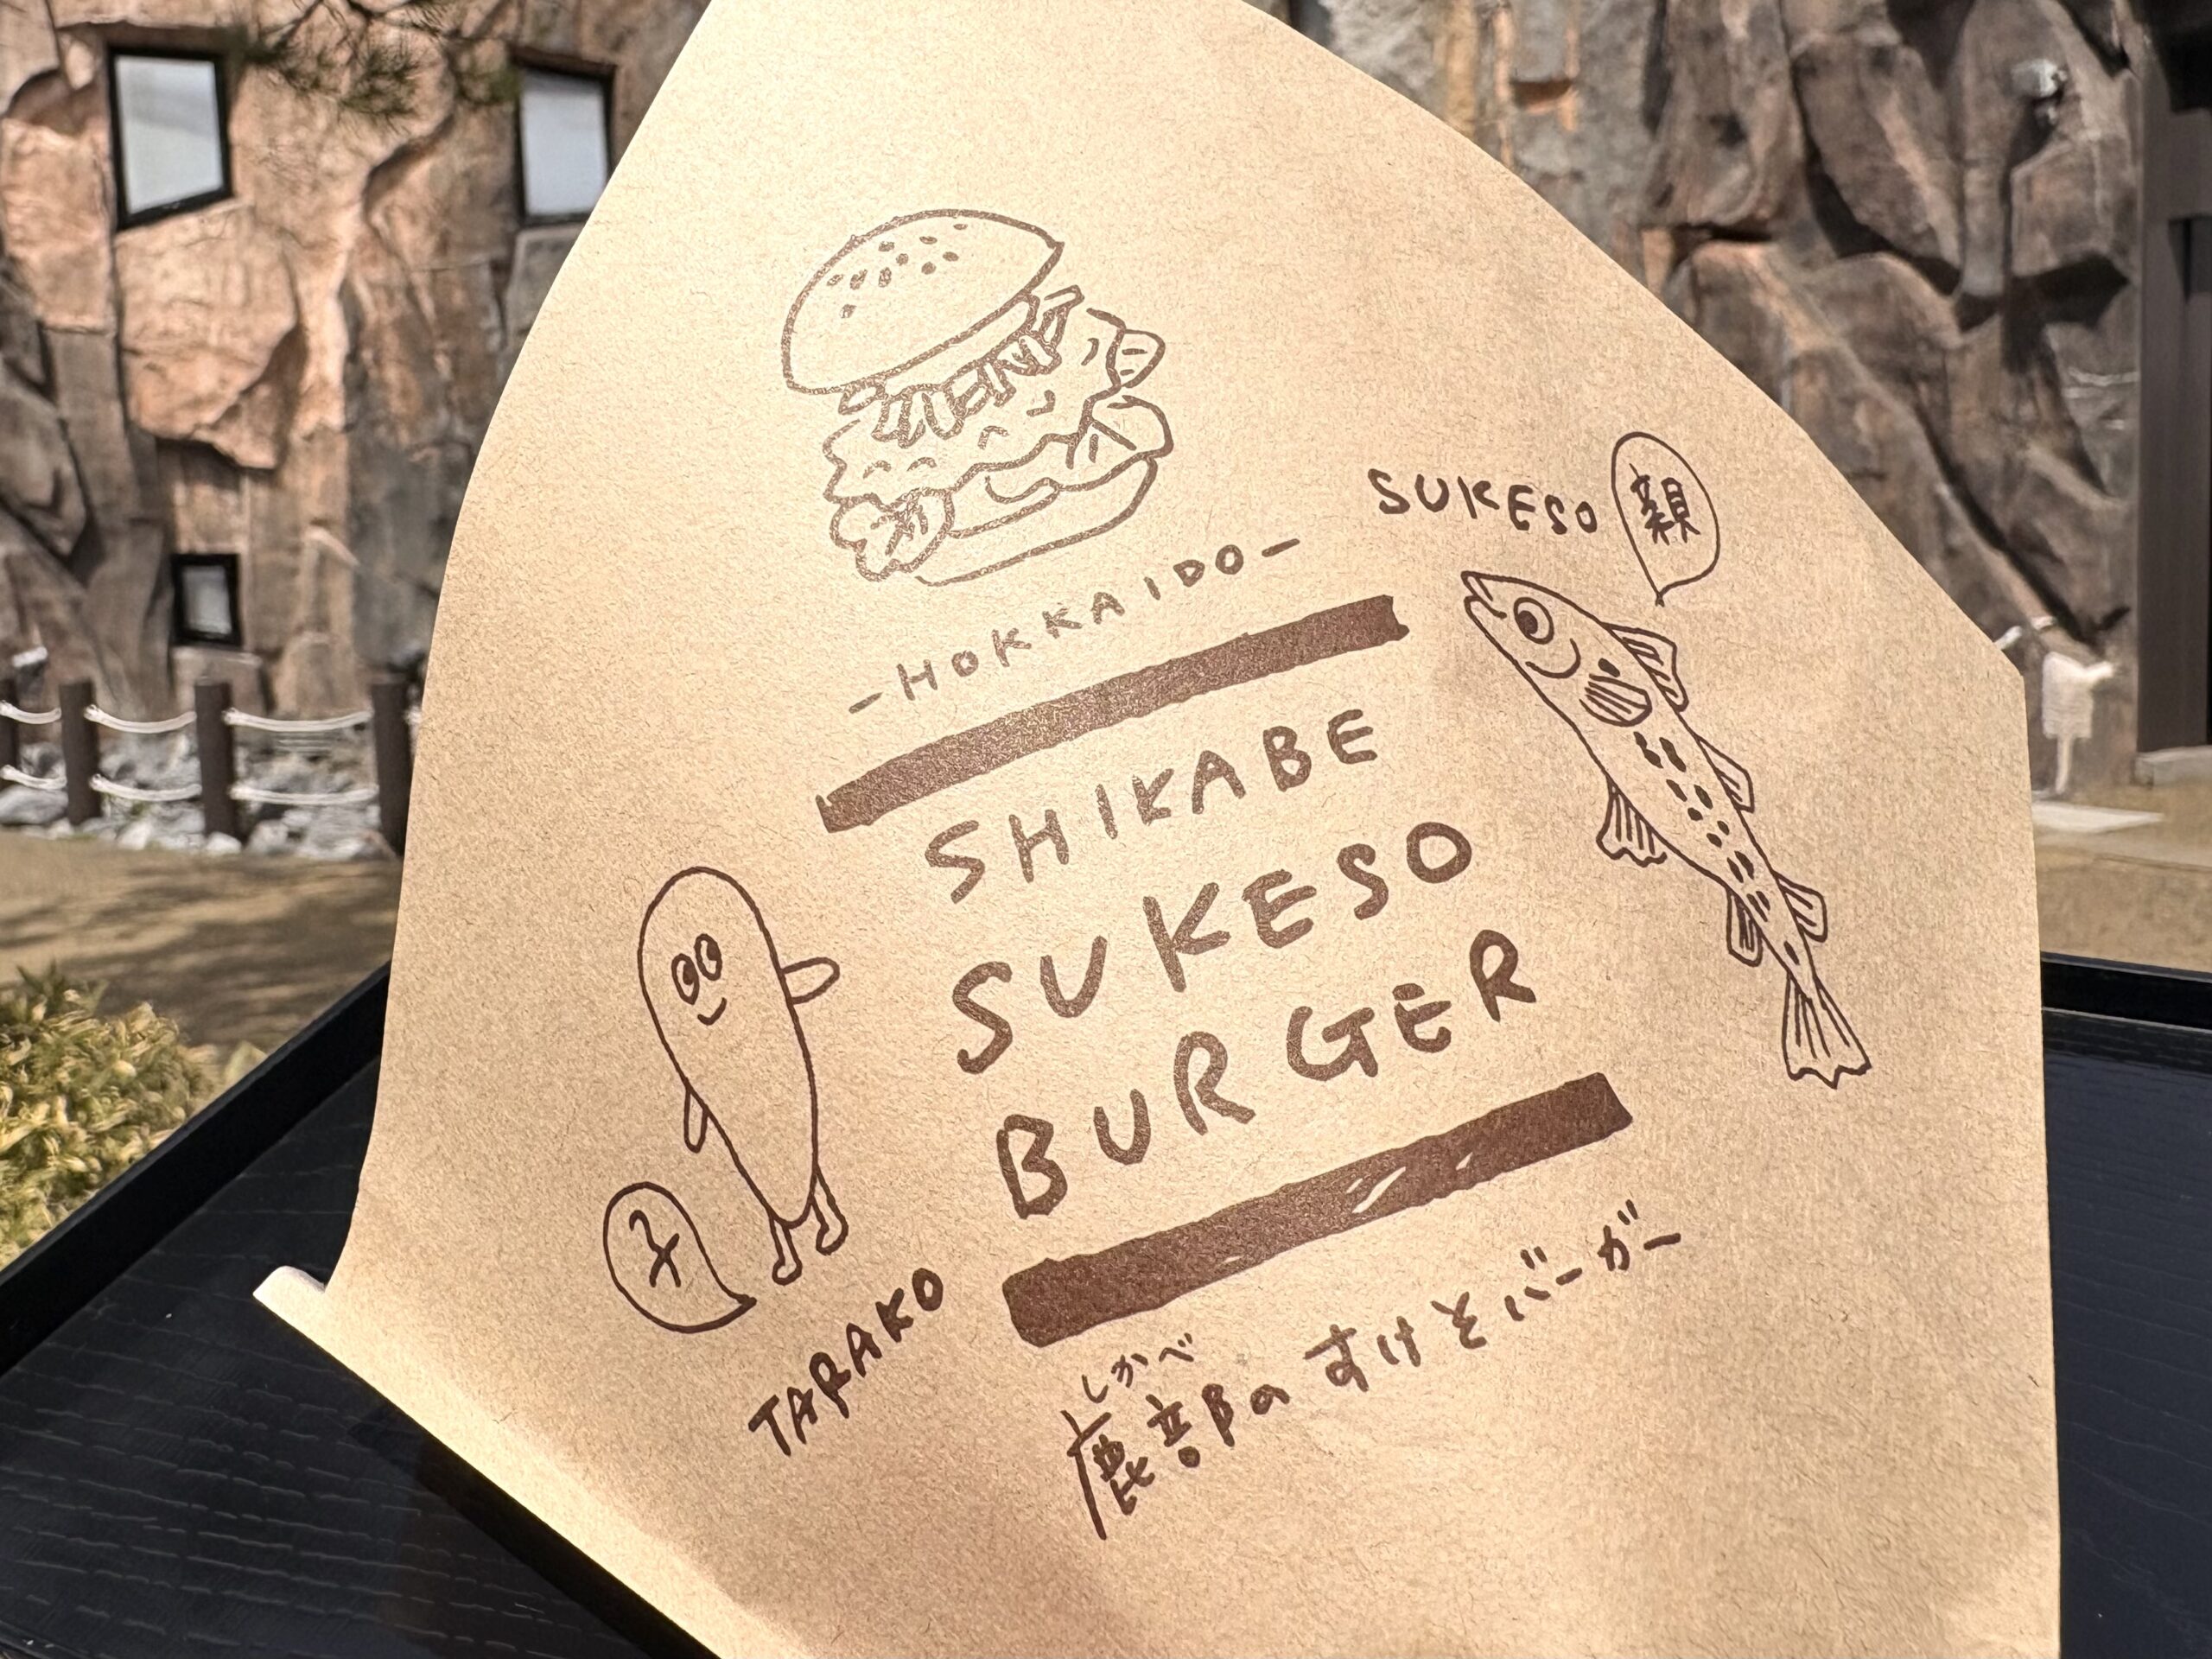 -HOKKAIDO-
SUKESO
親
SHIKABE
SUKESO
BURGER
子
TARAKO
しかべ
鹿部の すけそバーガー